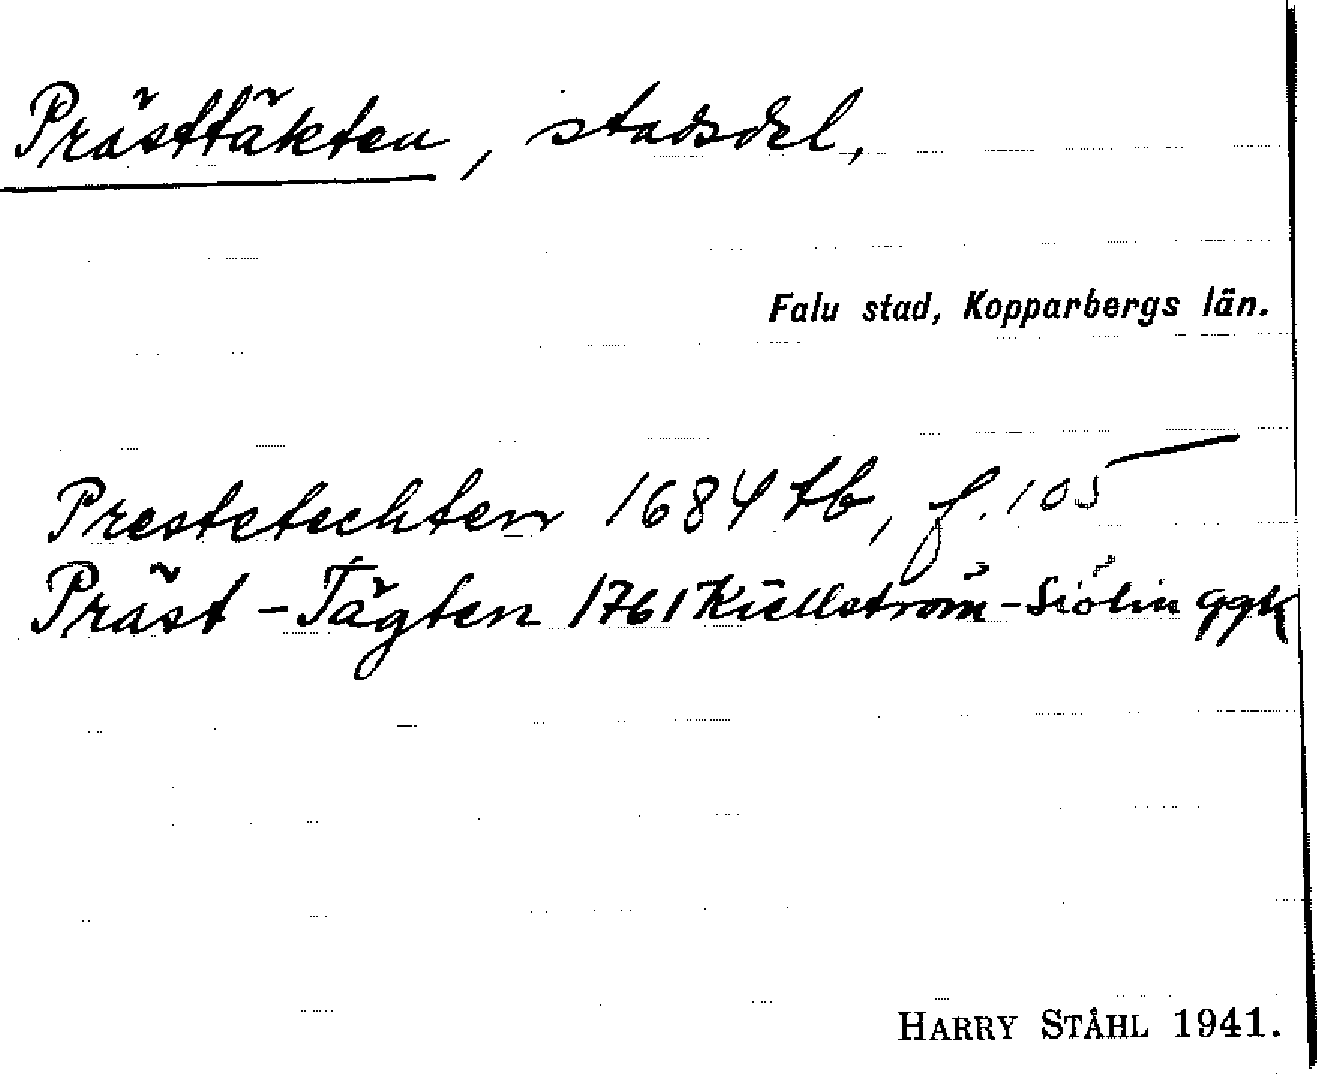 Prästtäkten, stadsdel,
Falu stad, Kopparbergs län.
Prestetechten 1684 tb, f. 105
Präst-Tägten 1761 Kiellström-Siölin ggk
HARRY STÅHL 1941.